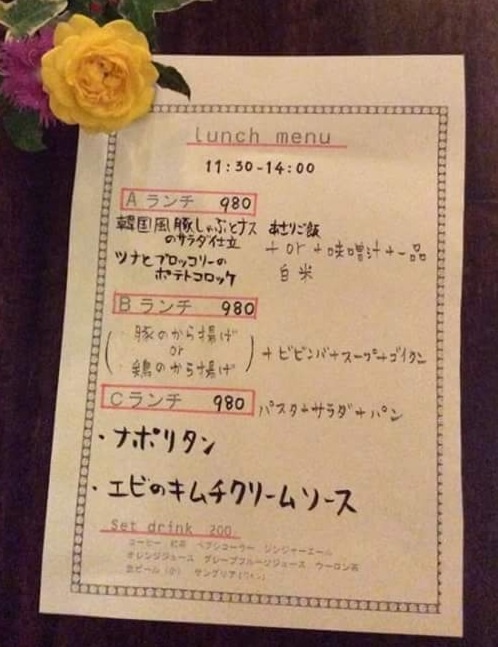 lunch menu
11:30-14:00
A ランチ 980
韓国風豚しゃぶとナス
のサラダ仕立
ツナとブロッコリーの
ポテトコロッケ
あさりご飯
+ or + 味噌汁 + 一品
白米
B ランチ 980
・豚のから揚げ
or
・鶏のから揚げ
+ ビビンバ + スープ +
C ランチ 980
パスタ + サラダ + パン
・ナポリタン
・エビのキムチクリームソース
Set drink 200
コーヒー 紅茶 ペプシコーラー ジンジャーエール
オレンジジュース グレープフルーツジュース ウーロン茶
生ビール (小) サングリア